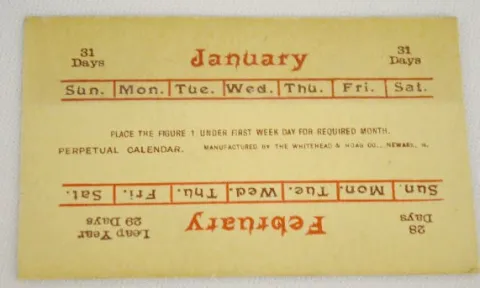 31 Days January 31 Days
Sun. Mon. Tue. Wed. Thu. Fri. Sat.
PLACE THE FIGURE 1 UNDER FIRST WEEK DAY FOR REQUIRED MONTH.
PERPETUAL CALENDAR. MANUFACTURED BY THE WHITEHEAD & HOAG CO., NEWARK, N.
28 Days February Leap Year 29 Days
Sun. Mon. Tue. Wed. Thu. Fri. Sat.